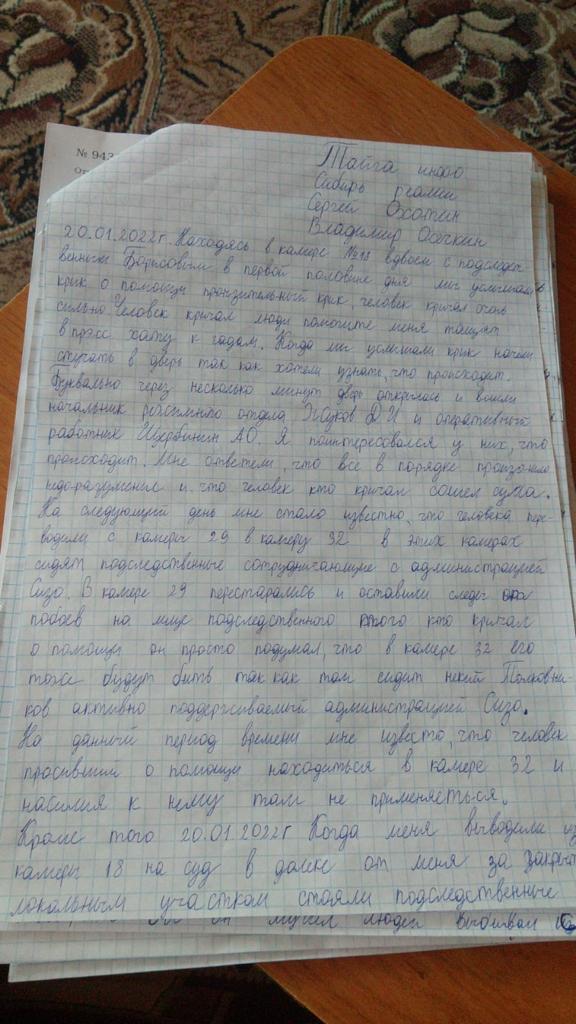 № 943
Тайга инфо
Сибирь реалии
Сергей Охотин
Владимир Осечкин
20.01.2022г. Находясь в камере №18 вдвоем с подследст
венным Борисовым в первой половине дня мы услышали
крик о помощи пронзительный крик человек кричал очень
сильно Человек кричал люди помогите меня тащят
в пресс хату к гадам. Когда мы услышали крик начели
стучать в дверь так как хотели узнать, что происходит.
Буквально через несколько минут дверь открылась и вошли
начальник режимного отдела Д И и оперативный
работник Щербинин АО. Я поинтересовался у них, что
происходит. Мне ответели, что все в порядке произошло
недоразумение и что человек кто кричал сошел сума.
На следующий день мне стало известно, что человека пере-
водили с камеры 29 в камеру 32 в этих камерах
сидят подследственные сотрудничающие с администрацией
Сизо. В камере 29 перестарались и оставили следы
побоев на лице подследственного того кто кричал
о помощи он просто подумал, что в камере 32 его
тоже будут бить так как там сидит некий Полковни-
ков активно поддерживаемый администрацией Сизо.
На данный период времени мне известо, что человек
просивший о помощи находиться в камере 32 и
насилия к нему там не применяеться.
Кроме того 20.01.2022г Когда меня выводили из
камеры 18 на суд в далеке от меня за закрыт
локальным участком стояли подследственные
он мучел людей выбивал